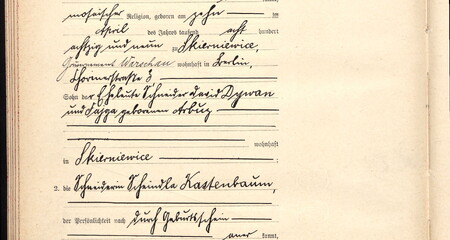 kannt,
mosaischer Religion, geboren am zehn
April des Jahres tausend acht hundert
achtzig und neun zu Skierniewice,
Gouvernement Warschau wohnhaft in Berlin,
Thornerstraße 8
Sohn der Eheleute Schneider David Dywan
und Fajga geborenen Arbuz
wohnhaft
in Skierniewice
2. die Schneiderin Scheindla Kastenbaum,
der Persönlichkeit nach durch Geburtsschein
aner kannt,